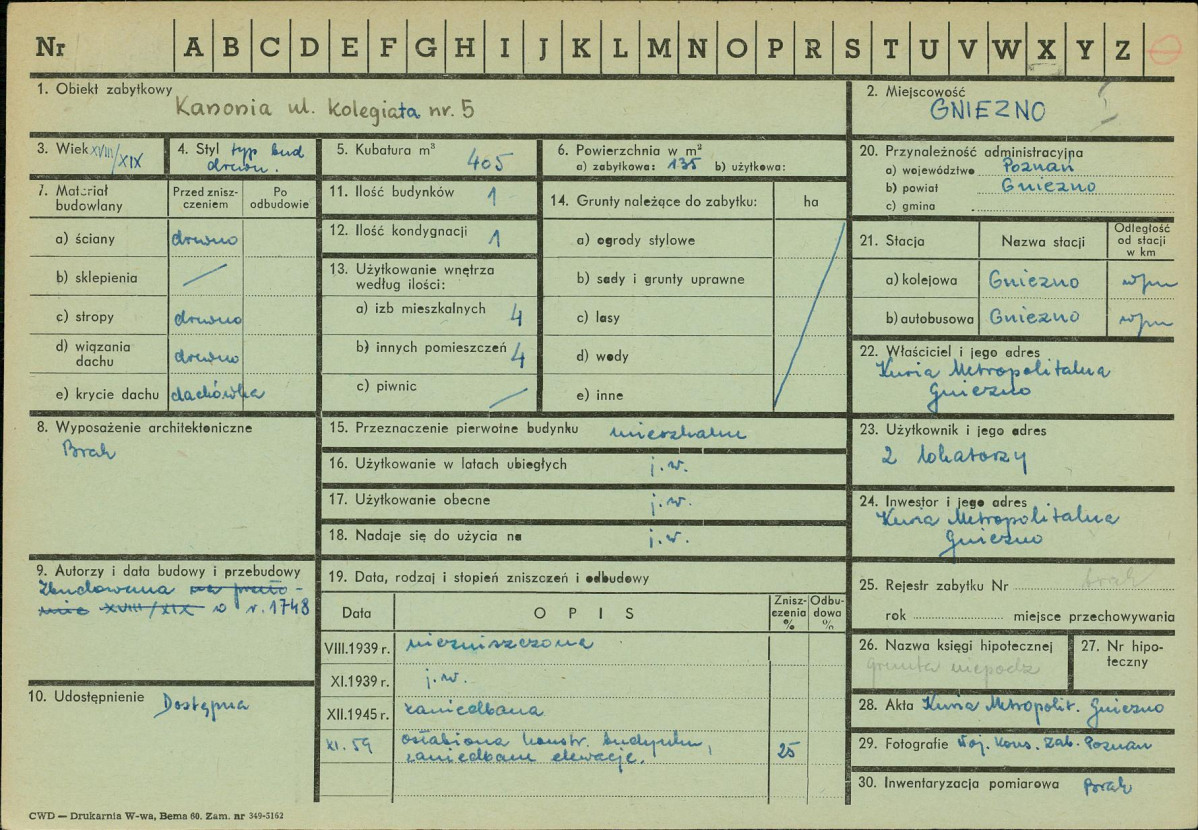 Nr A B C D E F G H I J K L M N O P R S T U V W X Y Z
1. Obiekt zabytkowy
Kanonia ul. Kolegiata nr. 5
2. Miejscowość
GNIEZNO
3. Wiek XVIII/XIX
4. Styl typ bud
drewn.
5. Kubatura m³ 405
6. Powierzchnia w m²
a) zabytkowa: 135 b) użytkowa:
20. Przynależność administracyjna
a) województwo Poznań
b) powiat Gniezno
c) gmina
7. Materiał
budowlany
Przed znisz-
czeniem
Po
odbudowie
a) ściany drewno
b) sklepienia
c) stropy drewno
d) wiązania
dachu drewno
e) krycie dachu dachówka
11. Ilość budynków 1
12. Ilość kondygnacji 1
13. Użytkowanie wnętrza
według ilości:
a) izb mieszkalnych 4
b) innych pomieszczeń 4
c) piwnic
14. Grunty należące do zabytku: ha
a) ogrody stylowe
b) sady i grunty uprawne
c) lasy
d) wody
e) inne
21. Stacja Nazwa stacji
Odległość
od stacji
w km
a) kolejowa Gniezno
b) autobusowa Gniezno
22. Właściciel i jego adres
Kuria Metropolitalna
Gniezno
8. Wyposażenie architektoniczne
Brak
15. Przeznaczenie pierwotne budynku mieszkalne
16. Użytkowanie w latach ubiegłych j.w.
17. Użytkowanie obecne j.w.
18. Nadaje się do użycia na j.w.
23. Użytkownik i jego adres
2 lokatorzy
24. Inwestor i jego adres
Kuria Metropolitalna
Gniezno
9. Autorzy i data budowy i przebudowy
Zbudowana na przeło-
mie XVIII/XIX w r. 1748
10. Udostępnienie Dostępna
19. Data, rodzaj i stopień zniszczeń i odbudowy
Data O P I S
Znisz-
czenia
%
Odbu-
dowa
%
VIII.1939 r. niezniszczona
XI.1939 r. j.w.
XII.1945 r. zaniedbana
XI.59 osłabiona konstr. budynku,
zaniedbane elewacje. 25
25. Rejestr zabytku Nr brak
rok miejsce przechowywania
26. Nazwa księgi hipotecznej
grunta niepodz
27. Nr hipo-
teczny
28. Akta Kuria Metropolit. Gniezno
29. Fotografie Woj. Kons. Zab. Poznań
30. Inwentaryzacja pomiarowa Brak
CWD — Drukarnia W-wa, Bema 60. Zam. nr 349-5162